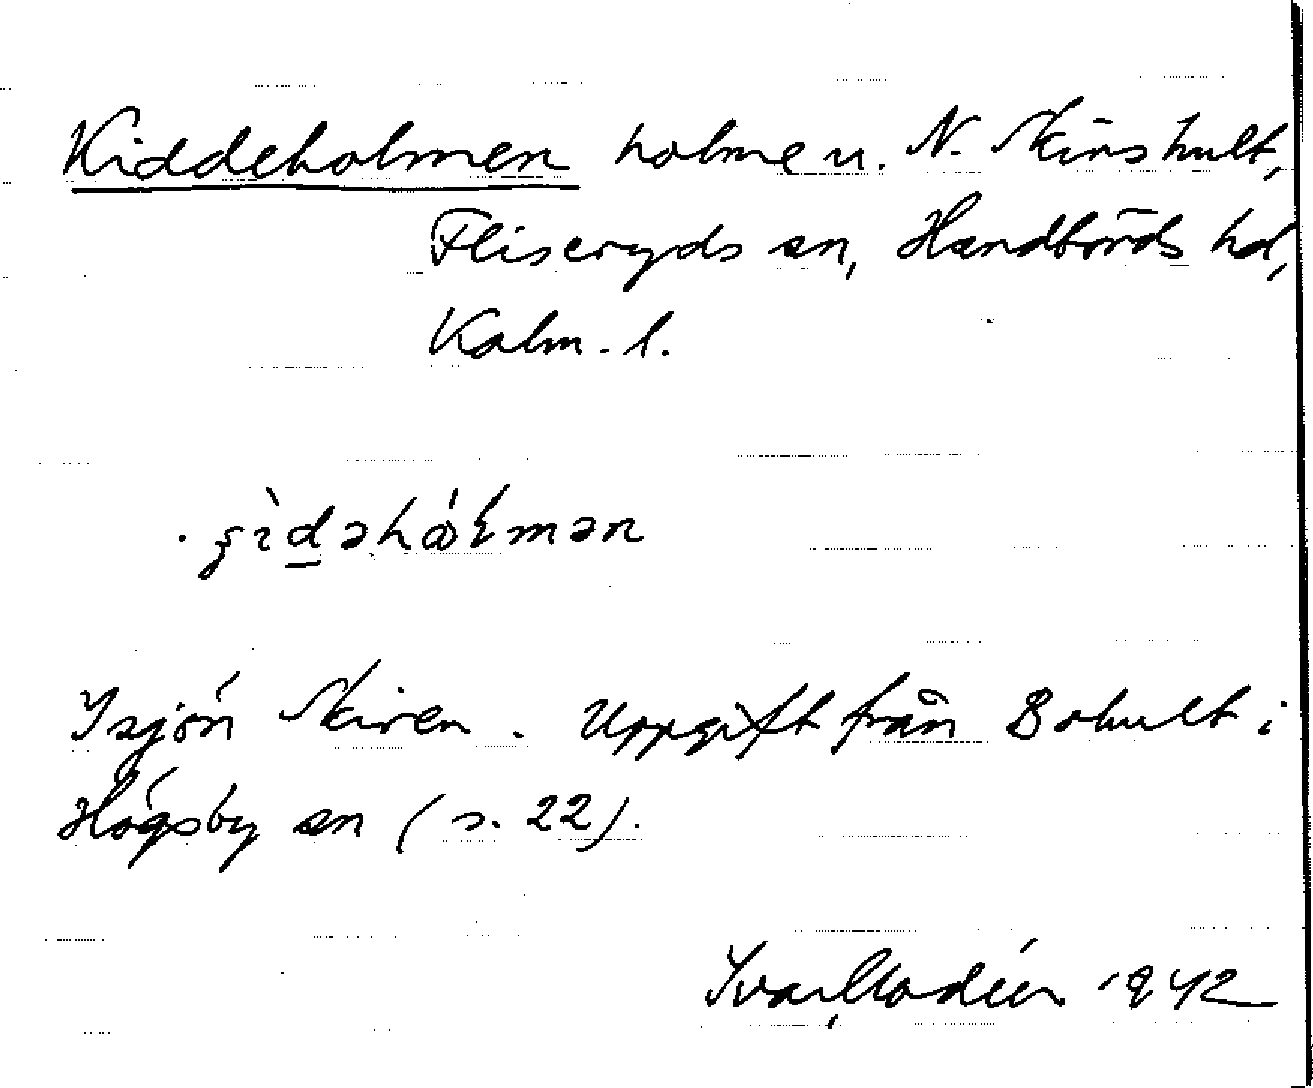 Kiddeholmen holme u. N. Skärshult,
Fliseryds sn, Handbörds hd,
Kalm. l.
I sjön Skiren. Uppgift från Bohult i
Högsby sn (s. 22).
Ivar Modéer 1942